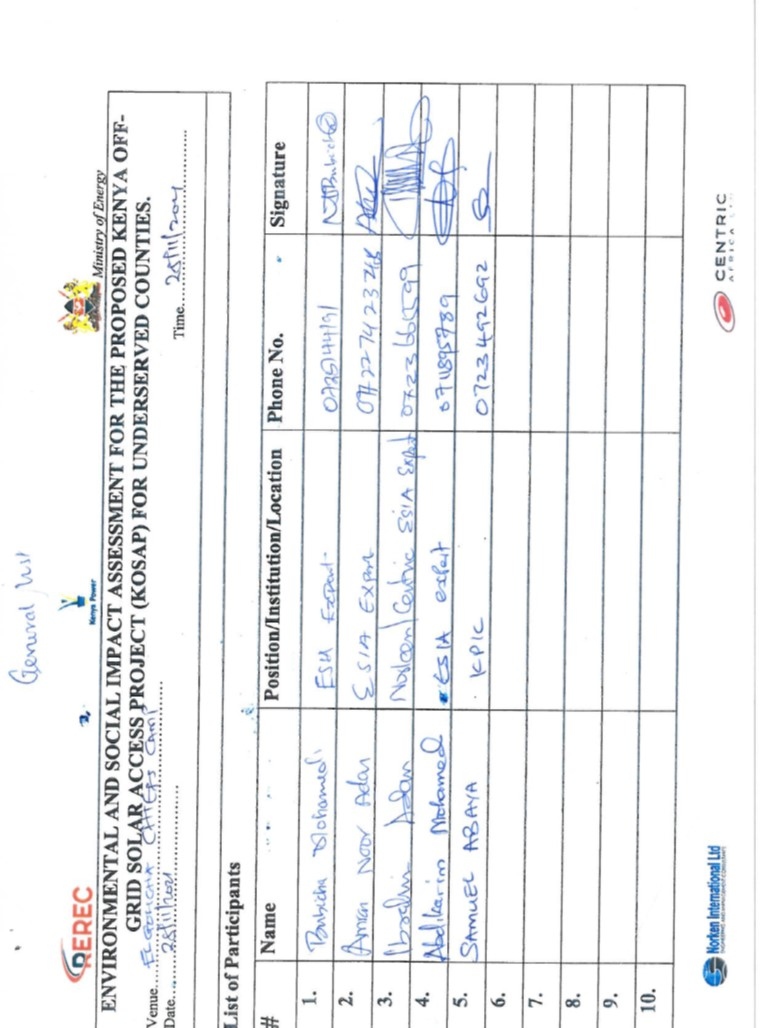 General list
REREC
Kenya Power
Ministry of Energy
ENVIRONMENTAL AND SOCIAL IMPACT ASSESSMENT FOR THE PROPOSED KENYA OFF-
GRID SOLAR ACCESS PROJECT (KOSAP) FOR UNDERSERVED COUNTIES.
Venue.... CHIEFS CAMP
Date.... 25/11/2021 Time.... 25/11/2021
List of Participants
# Name Position/Institution/Location Phone No. Signature
1. Mohamed Expert
2. Aman Noor Adan ESIA Expert
3. Ibrahim Adan Norken/Centric ESIA Expert
4. Abdikarim Mohamed ESIA expert 0711895789
5. SAMUEL ABAYA KPLC 0723492692
6.
7.
8.
9.
10.
Norken International Ltd
CENTRIC
AFRICA LTD